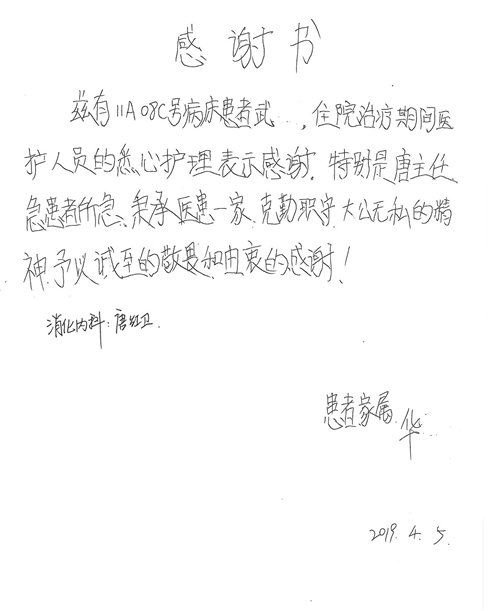 感谢书
兹有11A08C号病床患者武 ，住院治疗期间医
护人员的悉心护理表示感谢。特别是唐主任
急患者所急、秉承医患一家、克勤职守、大公无私的精
神，予以诚至的敬畏和由衷的感谢！
消化内科：唐红卫
患者家属 华
2019. 4. 5.